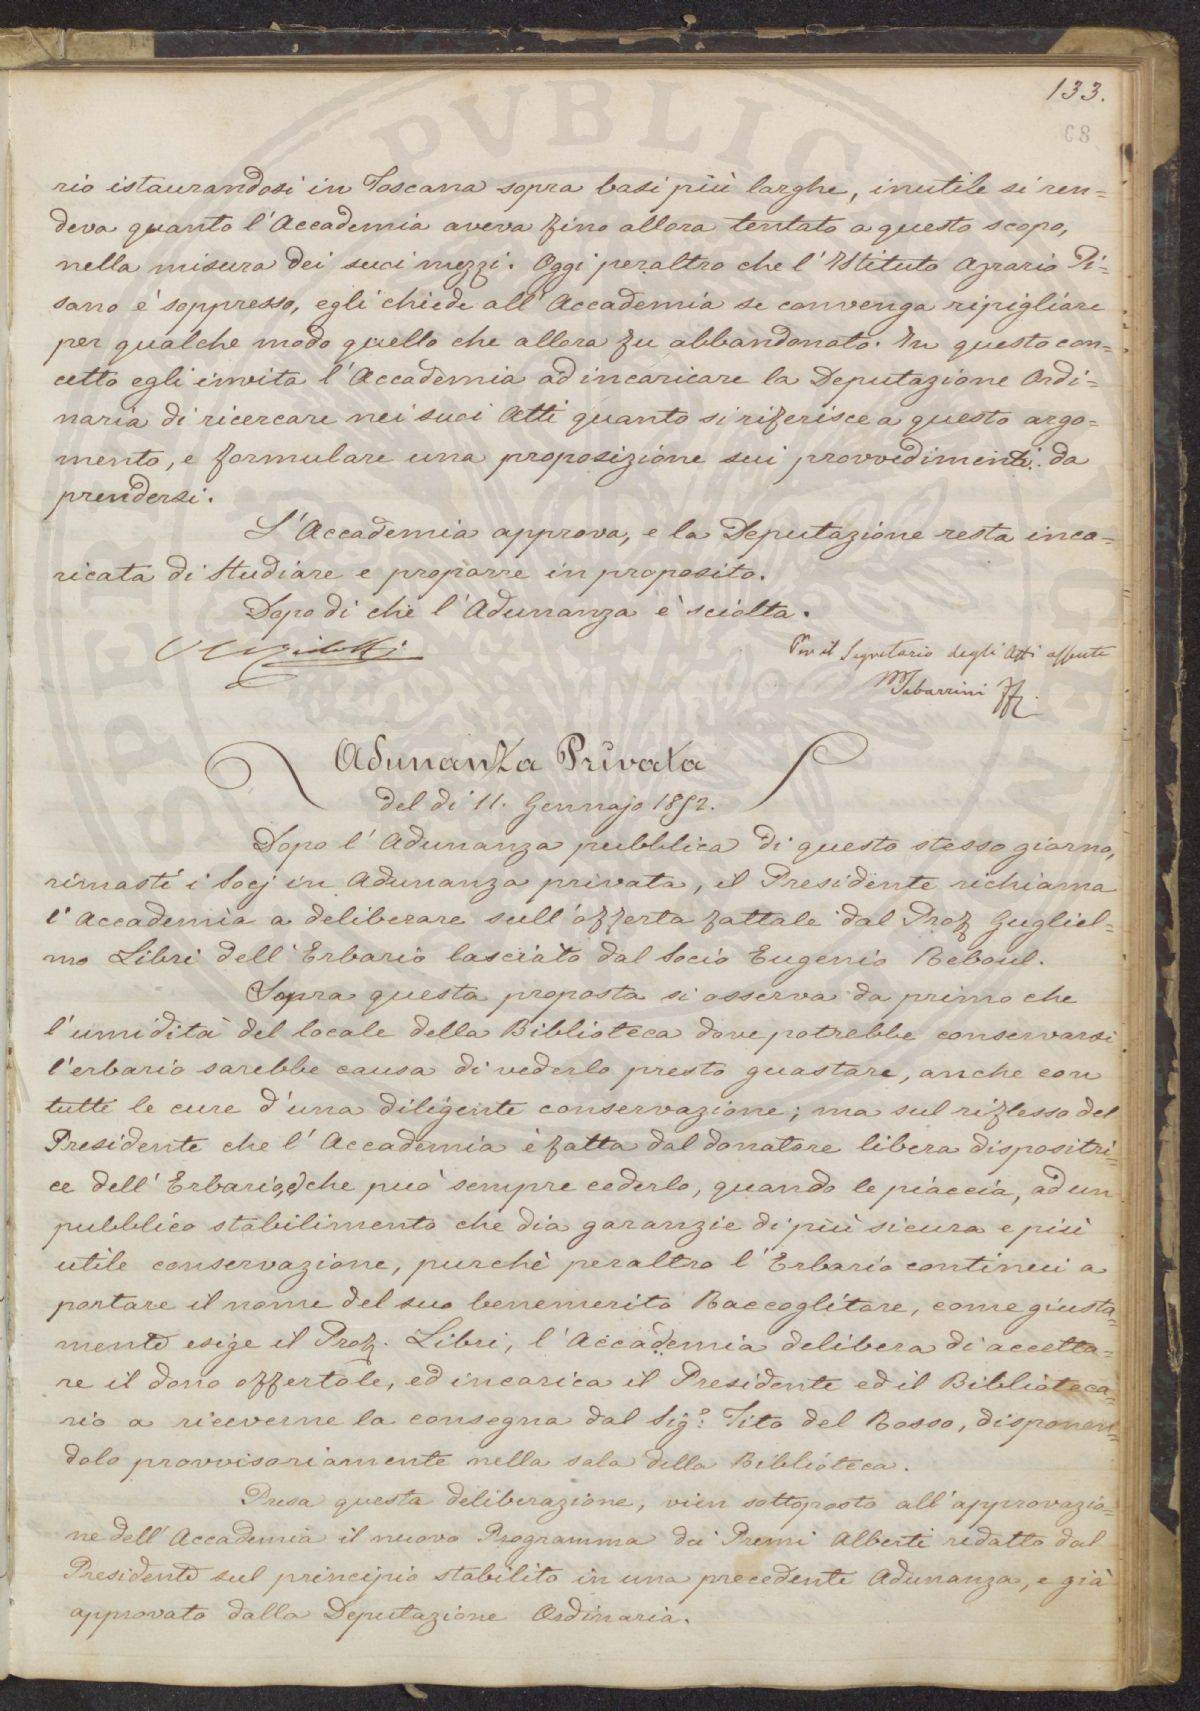 133.
68
rio istaurandosi in Toscana sopra basi più larghe, inutile si ren=
deva quanto l'Accademia aveva fino allora tentato a questo scopo,
nella misura dei suoi mezzi. Oggi peraltro che l'Istituto Agrario Pi=
sano è soppresso, egli chiede all'Accademia se convenga ripigliare
per qualche modo quello che allora fu abbandonato. In questo con=
cetto egli invita l'Accademia ad incaricare la Deputazione Ordi=
naria di ricercare nei suoi Atti quanto si riferisce a questo argo=
mento, e formulare una proposizione sui provvedimenti da
prendersi.
L'Accademia approva, e la Deputazione resta inca=
ricata di studiare e proporre in proposito.
Dopo di che l'Adunanza è sciolta.
Per il Segretario degli Atti assente
MTabarrini
Adunanza Privata
del dì 11. Gennajo 1852.
Dopo l'Adunanza pubblica di questo stesso giorno,
rimasti i Socj in Adunanza privata, il Presidente richiama
l'Accademia a deliberare sull'offerta fattale dal Prof Gugliel=
mo Libri dell'Erbario lasciato dal Socio Eugenio Reboul.
Sopra questa proposta si osserva da primo che
l'umidità del locale della Biblioteca dove potrebbe conservarsi
l'erbario sarebbe causa di vederlo presto guastare, anche con
tutte le cure d'una diligente conservazione; ma sul riflesso del
Presidente che l'Accademia è fatta dal donatore libera dispositri=
ce dell'Erbario, e che può sempre cederlo, quando le piaccia, ad un
pubblico stabilimento che dia garanzie di più sicura e più
utile conservazione, purchè peraltro l'Erbario continui a
portare il nome del suo benemerito Raccoglitore, come giusta=
mente esige il Prof. Libri, l'Accademia delibera di accetta=
re il dono offertole, ed incarica il Presidente ed il Biblioteca=
rio a riceverne la consegna dal Sig.r Tito del Rosso, disponen=
dolo provvisoriamente nella sala della Biblioteca.
Presa questa deliberazione, vien sottoposto all'approvazio=
ne dell'Accademia il nuovo Programma dei Premi Alberti redatto dal
Presidente sul principio stabilito in una precedente Adunanza, e già
approvato dalla Deputazione Ordinaria.